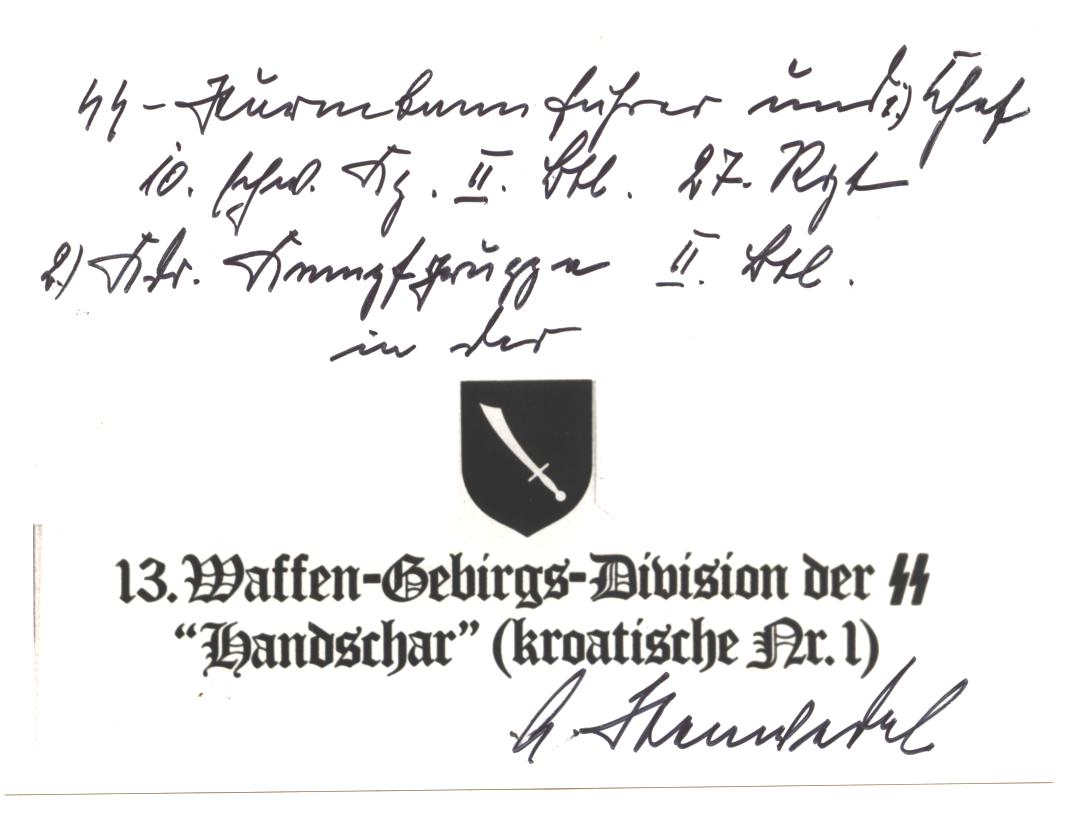 SS-Sturmbannführer und 1.) Chef
10. schw. Kp. II. Btl. 27. Rgt
2.) Kdr. Kampfgruppe II. Btl.
in der
13. Waffen-Gebirgs-Division der SS
"Handschar" (kroatische Nr. 1)
A. Stenwedel